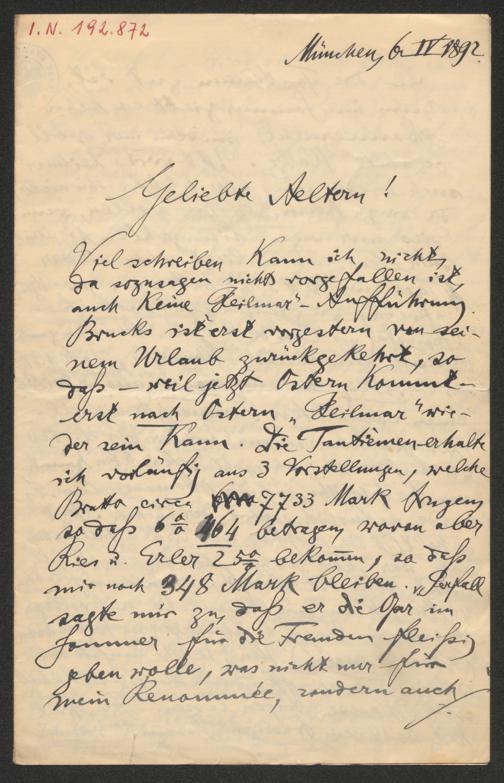 I.N. 192.872
München, 6 IV 1892.
Geliebte Aeltern!
Viel schreiben kann ich nicht,
da sozusagen nichts vorgefallen ist,
auch keine "Heilmar"-Aufführung.
Brucks ist erst vorgestern von sei-
nem Urlaub zurückgekehrt, so
daß – weil jetzt Ostern kommt –
erst nach Ostern "Heilmar" wie-
der sein kann. Die Tantièmen erhalte
ich vorläufig aus 3 Vorstellungen, welche
Brutto circa 7733 Mark trugen,
so daß 6% 464 betragen, wovon aber
Ries u. Erler 25% bekomm, so daß
mir noch 348 Mark bleiben. Perfall
sagte mir zu, daß er die Oper im
Sommer für die Fremden fleißig
geben wolle, was nicht nur für
mein Renommée, sondern auch